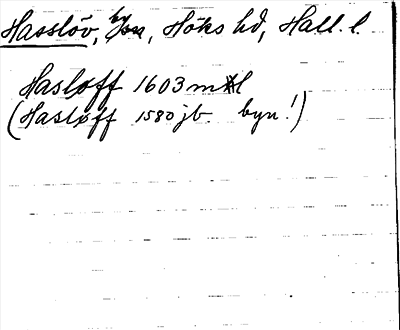 Hasslöv, by, Höks hd, Hall. l.
Hasløff 1603 ml
(Hasløff 1580 jb. byn!)